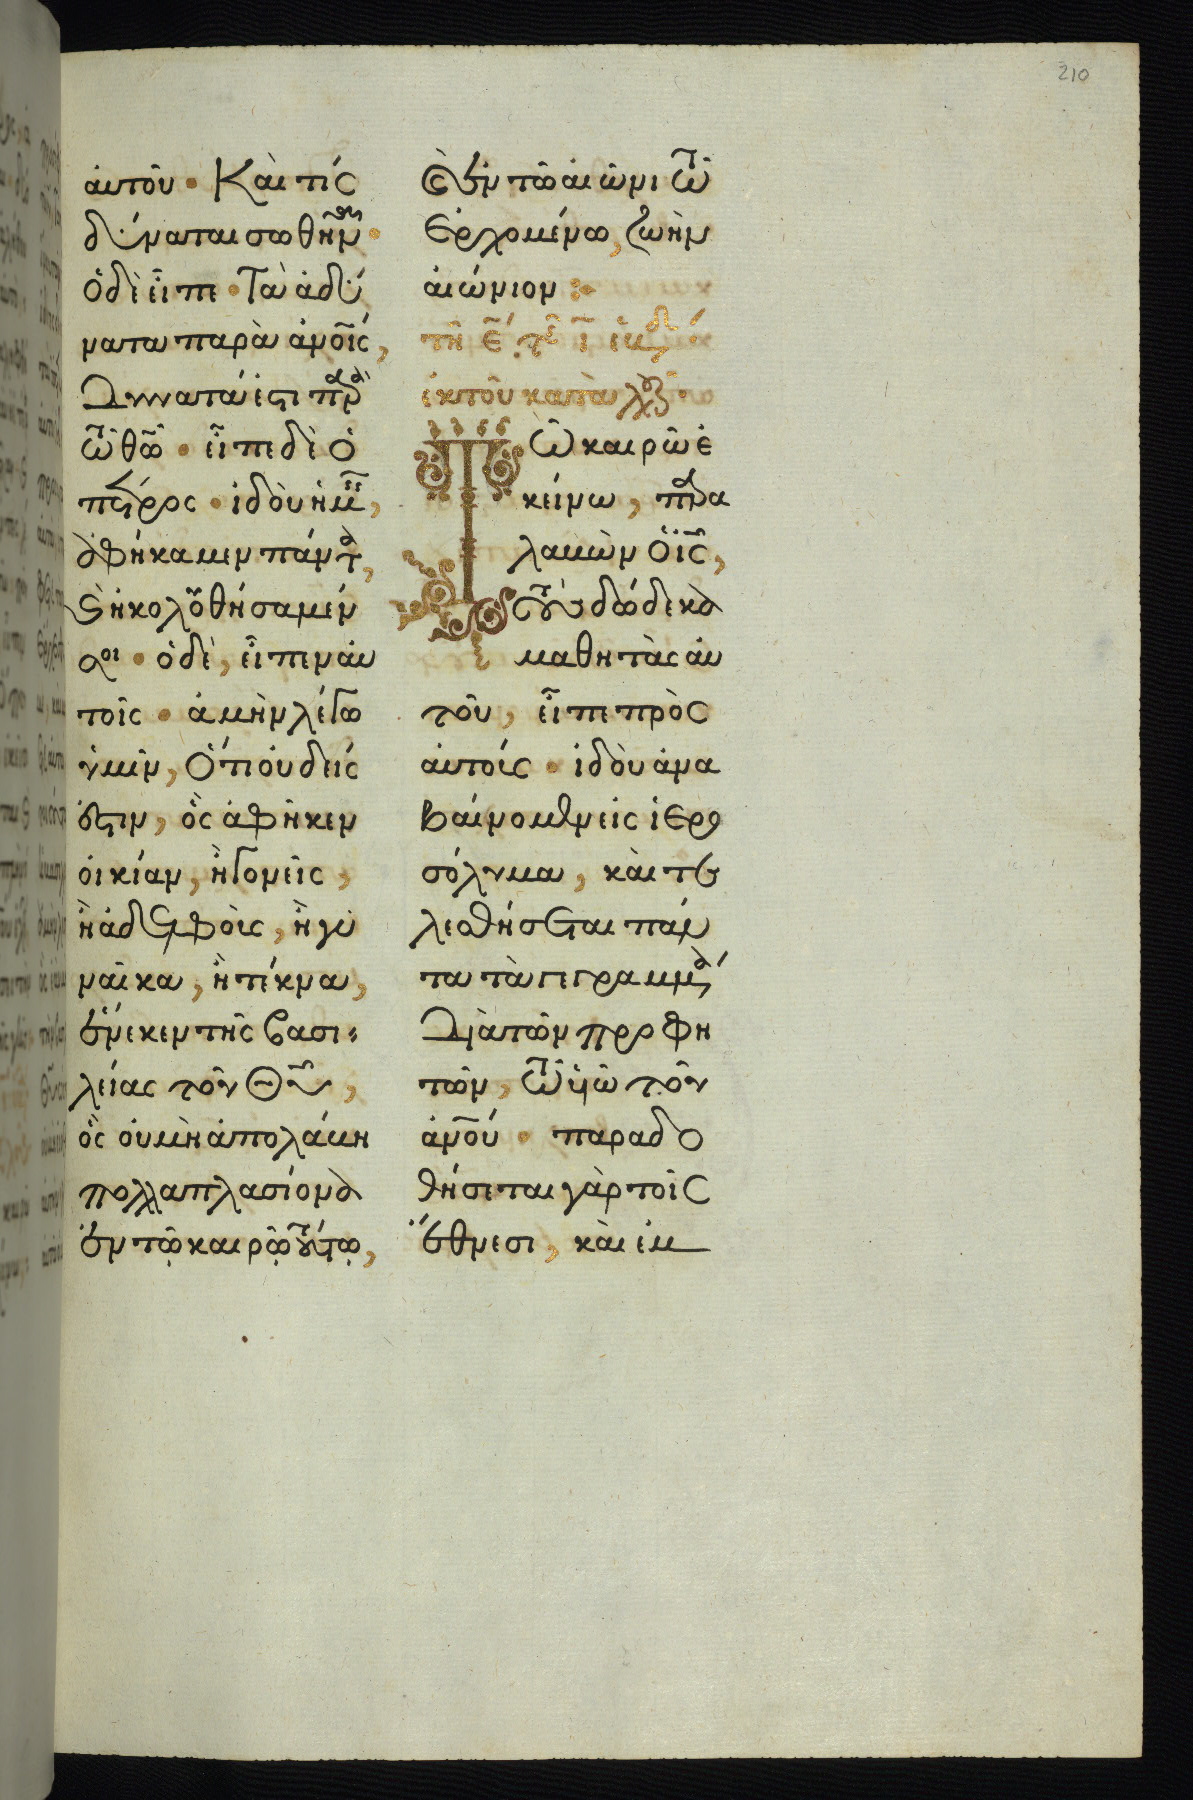 210
αὐτοῦ · Καὶ τίς
δύναται σωθῆν
Ὁ δὲ εἶπε · Τὰ ἀδύ
νατα παρὰ ἀνοῖς,
Δυνατά ἐστι παρὰ
τῶ θῶ · εἶπε δὲ ὁ
πέτρος · ἰδοὺ ἡμ,
ἀφήκαμεν πάντα,
κ ἠκολουθήσαμέν
σοι · ὁ δὲ, εἶπεν αὐ
τοῖς · ἀμὴν λέγω
ὑμῖν, Ὅτι οὐδείς
ἐστιν, ὃς ἀφῆκεν
οἰκίαν, ἢ γονεῖς,
ἢ ἀδελφοὺς, ἢ γυ
ναῖκα, ἢ τέκνα,
ἕνεκεν τῆς βασι
λείας τοῦ Θῦ,
ὃς οὐ μὴ ἀπολάβη
πολλαπλασίονα
ἐν τῷ καιρῷ τούτῳ,
κ ἐν τῶ αἰῶνι τῶ
Ερχομένω, ζωὴν
αἰώνιον :
τῆ ε τ ι
ἐκ τοῦ κατὰ λουκ
Τῶ καιρῶ ἐ
κείνω, παρα
λαβὼν ὁ ις,
τοὺς δώδεκα
μαθητὰς αὐ
τοῦ, εἶπε πρὸς
αὐτούς · ἰδοὺ ἀνα
βαίνομεν εἰς ἱερο
σόλυμα, καὶ τε
λεσθήσεται πάν
τα τὰ γεγραμμένα
Διὰ τῶν προφη
τῶν, τῶ υἱῶ τοῦ
ἀνού · παραδο
θήσεται γὰρ τοῖς
ἔθνεσι, καὶ ἐμ